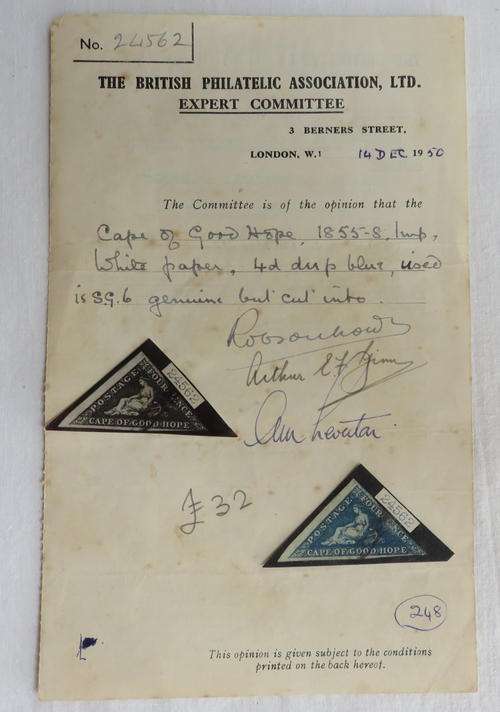 No. 24562
THE BRITISH PHILATELIC ASSOCIATION, LTD.
EXPERT COMMITTEE
3 BERNERS STREET,
LONDON, W.1 14 DEC 1950
The Committee is of the opinion that the
Cape of Good Hope, 1855-8, Imp,
White paper, 4d deep blue, used
is S.G.6 genuine but cut into.
Robson Lowe
Arthur
24562
POSTAGE
FOUR PENCE
CAPE OF GOOD HOPE
£32
24562
POSTAGE
FOUR PENCE
CAPE OF GOOD HOPE
248
This opinion is given subject to the conditions
printed on the back hereof.